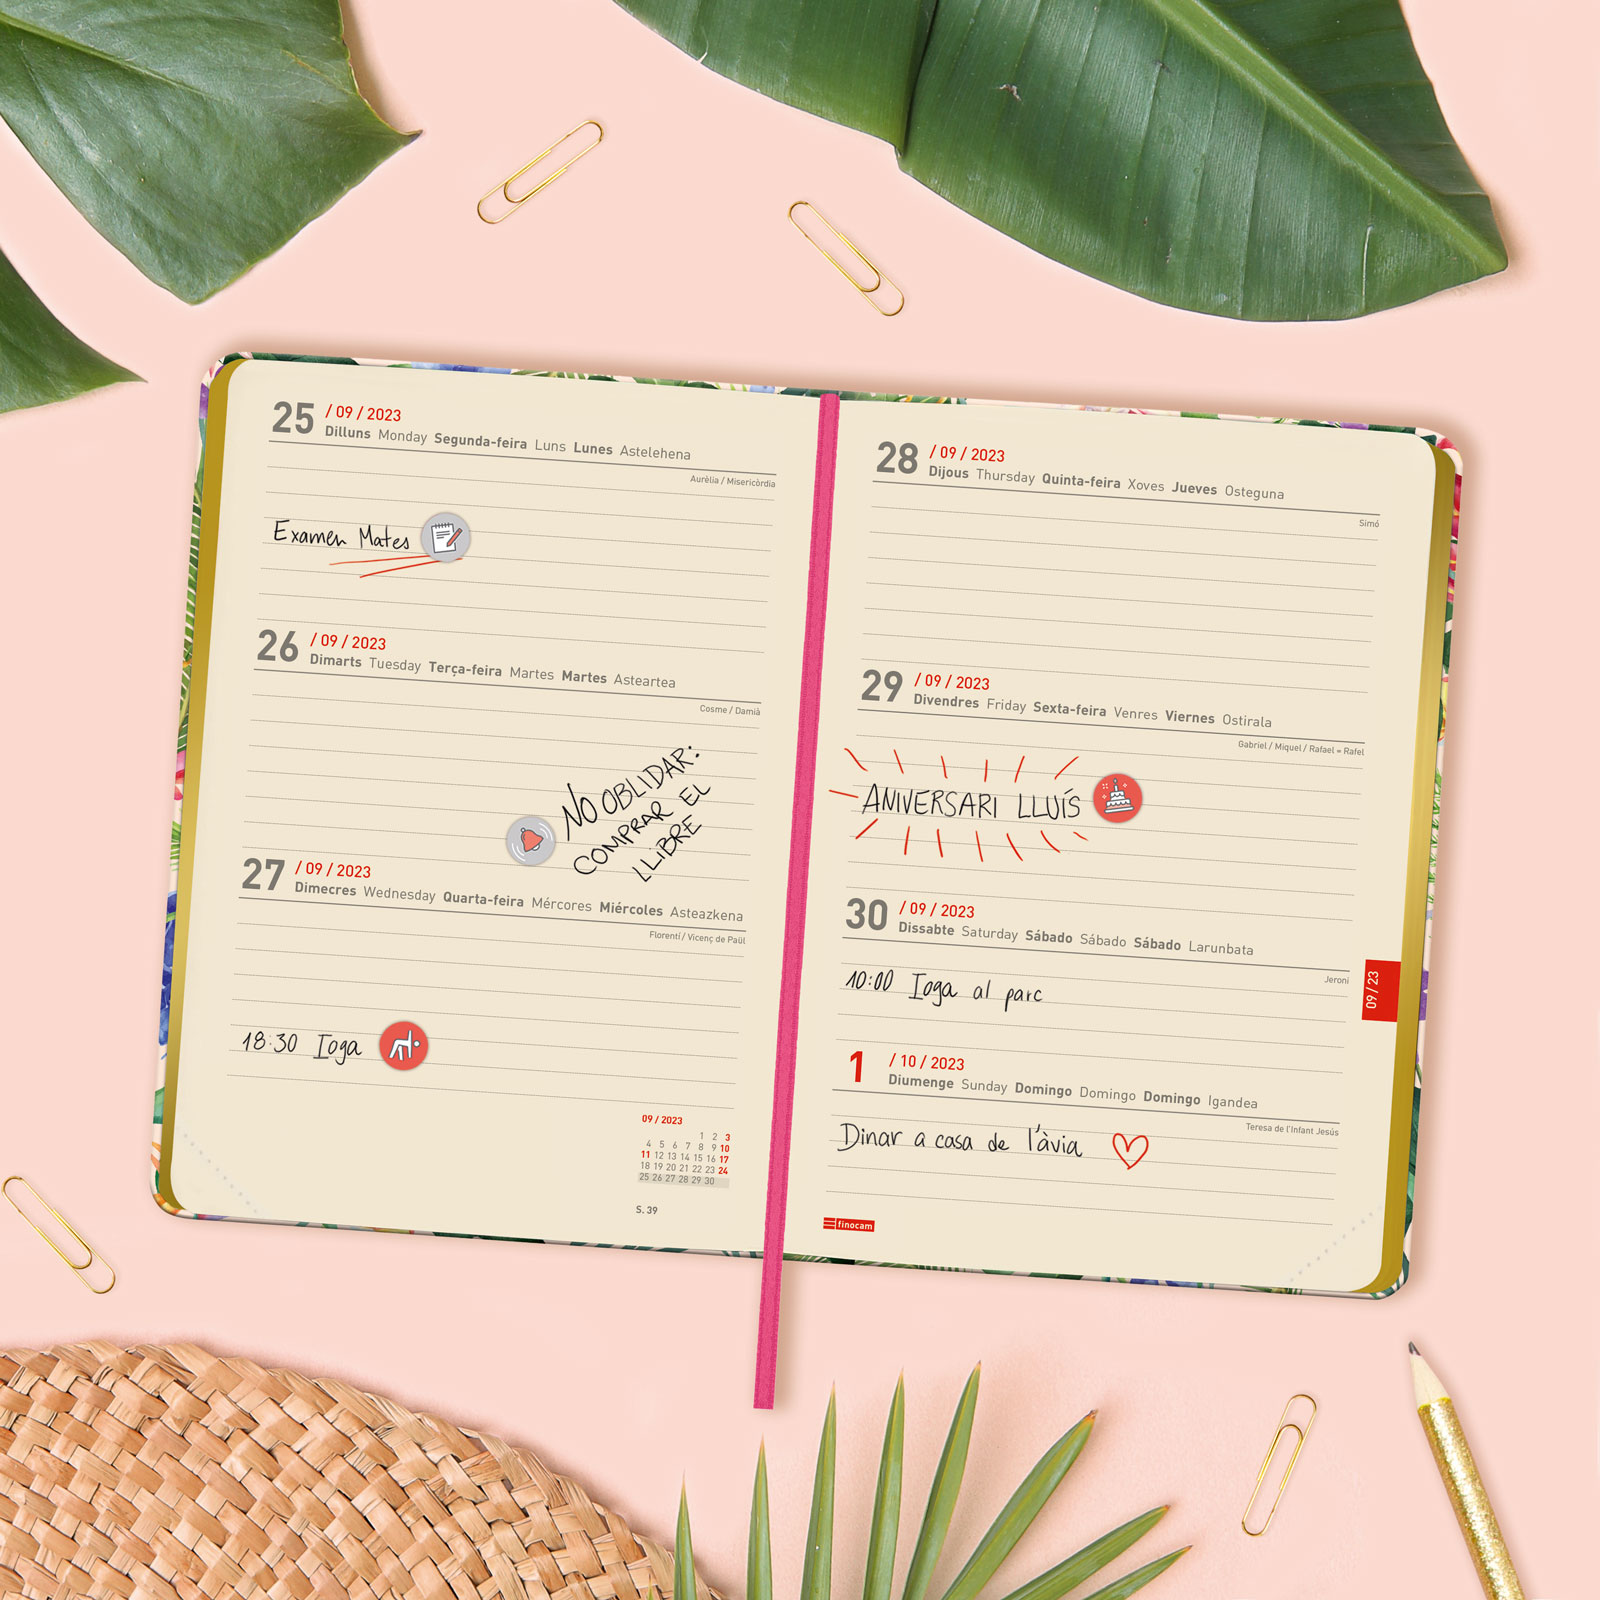 25 / 09 / 2023
Dilluns Monday Segunda-feira Luns Lunes Astelehena
Aurèlia / Misericòrdia
Examen Mates
26 / 09 / 2023
Dimarts Tuesday Terça-feira Martes Martes Asteartea
Cosme / Damià
NO OBLIDAR:
COMPRAR EL
LLIBRE
27 / 09 / 2023
Dimecres Wednesday Quarta-feira Mércores Miércoles Asteazkena
Florentí / Vicenç de Paül
18:30 Ioga
09 / 2023
1 2 3
4 5 6 7 8 9 10
11 12 13 14 15 16 17
18 19 20 21 22 23 24
25 26 27 28 29 30
S. 39
28 / 09 / 2023
Dijous Thursday Quinta-feira Xoves Jueves Osteguna
Simó
29 / 09 / 2023
Divendres Friday Sexta-feira Venres Viernes Ostirala
Gabriel / Miquel / Rafael = Rafel
ANIVERSARI LLUÍS
30 / 09 / 2023
Dissabte Saturday Sábado Sábado Sábado Larunbata
Jeroni
10:00 Ioga al parc
09 / 23
1 / 10 / 2023
Diumenge Sunday Domingo Domingo Domingo Igandea
Teresa de l'Infant Jesús
Dinar a casa de l'àvia
finocam